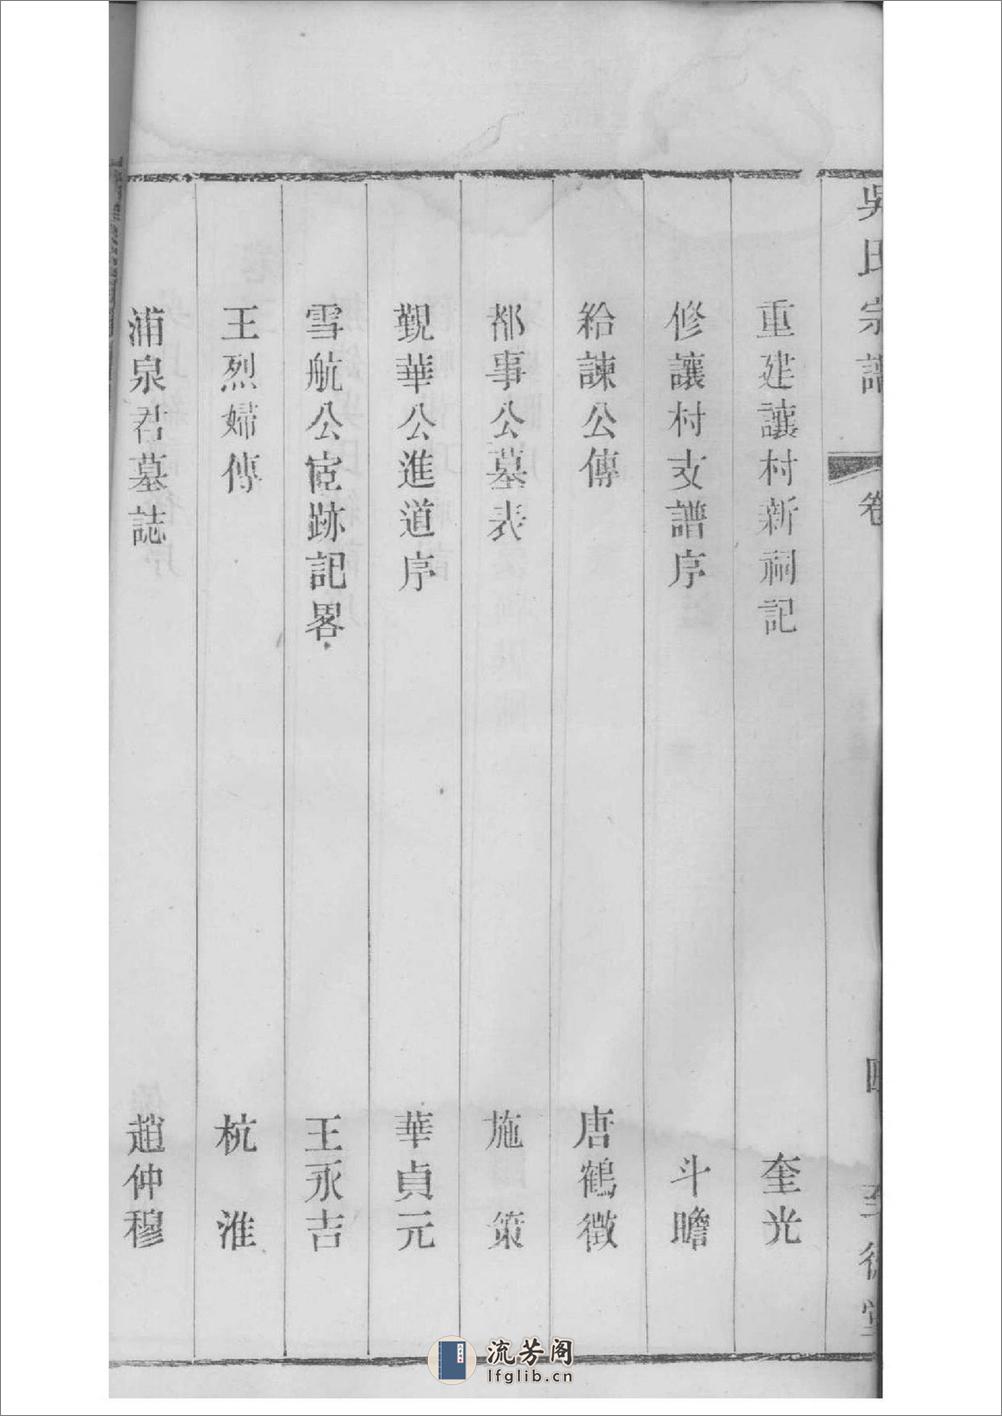 吳氏宗譜 卷 四 至德堂
重建讓村新祠記 奎光
修讓村支譜序 斗瞻
給諫公傳 唐鶴徵
都事公墓表 施策
覲華公進道序 華貞元
雪航公宦跡記畧 王永吉
王烈婦傳 杭淮
浦泉君墓誌 趙仲穆
流芳阁
lfglib.cn